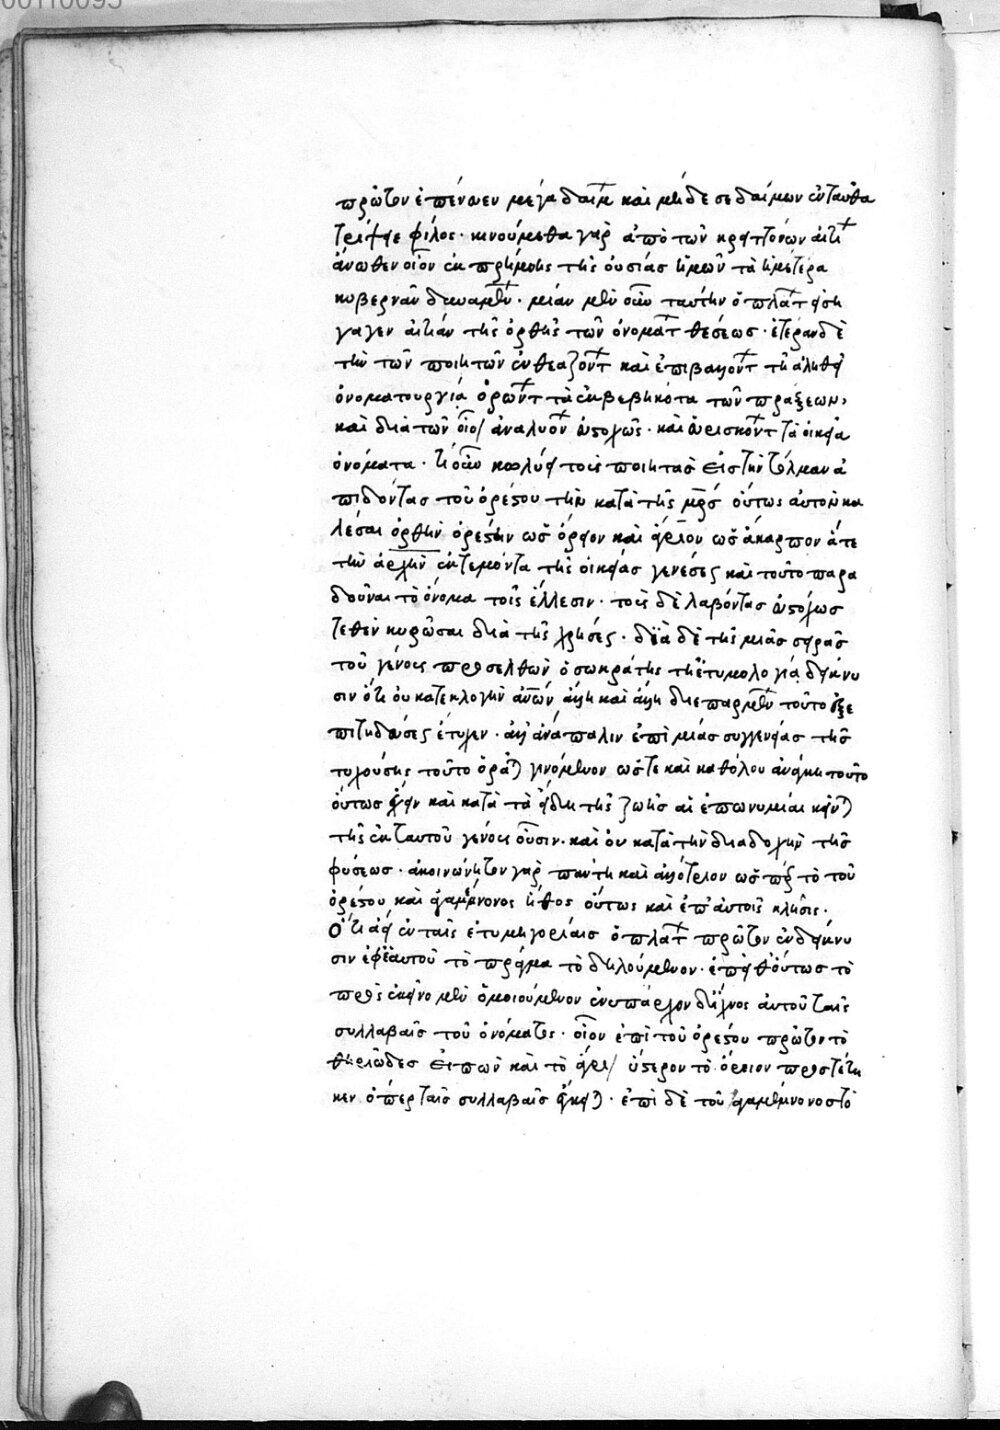 πρῶτον ἐπένευεν μέγα δαίμ καὶ μήδε σε δαίμων ἐνταῦθα
τρέψῃ φίλος· κινούμεθα γὰρ ἀπὸ τῶν κρειττόνων αἰτι
ἄνωθεν οἷον ἐκ πρύμνης τῆς οὐσίας ἡμῶν τὰ ἡμέτερα
κυβερνᾶν δυναμεν· μίαν μὲν οὖν ταύτην ὁ πλατ εἰση
γαγεν αἰτίαν τῆς ὀρθῆς τῶν ὀνοματ θέσεως· ἑτέραν δὲ
τὴν τῶν ποιητῶν ἐνθεαζοντ καὶ ἐπιβαλλοντ τῇ ἀληθεῖ
ὀνοματουργία ὁρωντ τὰ ἐκβεβηκότα τῶν πράξεων,
καὶ διὰ τῶν οἷο ἀναλυον εὐλόγως· καὶ εὑρισκοντ τὰ οἰκεῖα
ὀνόματα· τί οὖν κωλύει τοὶς ποιητὰς εἰς τὴν τόλμαν ἀ
πιδόντας τοῦ ὀρέστου τὴν κατὰ τῆς μρς οὕτως αὐτὸν κα
λέσαι ὀρθὴν ὀρέστην ὡς ὄρειον καὶ ἄγριον ὡς ἄκαρπον ἅτε
τὴν ἀρχὴν ἐκτεμόντα τῆς οἰκείας γενέσες καὶ τοῦτο παρα
δοῦναι τὸ ὄνομα τοῖς ἕλλησιν· τοὶς δὲ λαβόντας εὐλόγως
τεθὲν κυρῶσαι διὰ τῆς χρήσες· διὰ δὲ τῆς μιᾶς σειρᾶς
τοῦ γένοις προσελθὼν ὁ σωκράτης τῇ ἐτυμολογία δείκνυ
σιν ὅτι οὐ κατεκλογὴν ἀνων, ἄλλη καὶ ἄλλη διεπαρμεν τοῦτο ἐξε
πιτηδεύσες ἔτυχεν· ἀλλ ἀνάπαλιν ἐπὶ μιᾶς συγγενείας τῆς
τυχούσης τοῦτο ὁρᾶται γινόμενον ὥστε καὶ καθόλου ἀνάγκη τοῦτο
οὕτως ἔχειν καὶ κατὰ τὰ εἴδη τῆς ζωῆς αἱ ἐπωνυμίαι κεῖνται
τῆς ἐκ ταυτοῦ γένοις οὖσιν· καὶ οὐ κατὰ τὴν διαδοχὴν τῆς
φύσεως· ἀκοινώνητον γὰρ πάντη καὶ ἀλλότριον ὡς πρς τὸ τοῦ
ὀρέστου καὶ ἀγαμέμνονος ἦθος οὕτως καὶ ἐπ' αὐτοῖς κλῆσις·
Ὅτι ἀεὶ ἐν ταῖς ἐτυμηγορίαις ὁ πλατ πρῶτον ἐνδείκνυ
σιν ἐφ ἑαυτοῦ τὸ πρᾶγμα τὸ δηλούμενον· ἐπειθ οὕτως τὸ
πρὸς ἐκεῖνο μὲν ὁμοιούμενον ἐνυπάρχον δ ἴχνος αὐτοῦ ταῖς
συλλαβαῖς τοῦ ὀνόματος· οἷον ἐπὶ τοῦ ὀρέστου πρῶτον τὸ
θηριῶδες εἰπὼν καὶ τὸ ἄγρι ὕστερον τὸ ὄρειον προστέθη
κεν ὅπερ ταῖς συλλαβαῖς ἔοικε· ἐπὶ δὲ τοῦ ἀγαμέμνονος τὸ